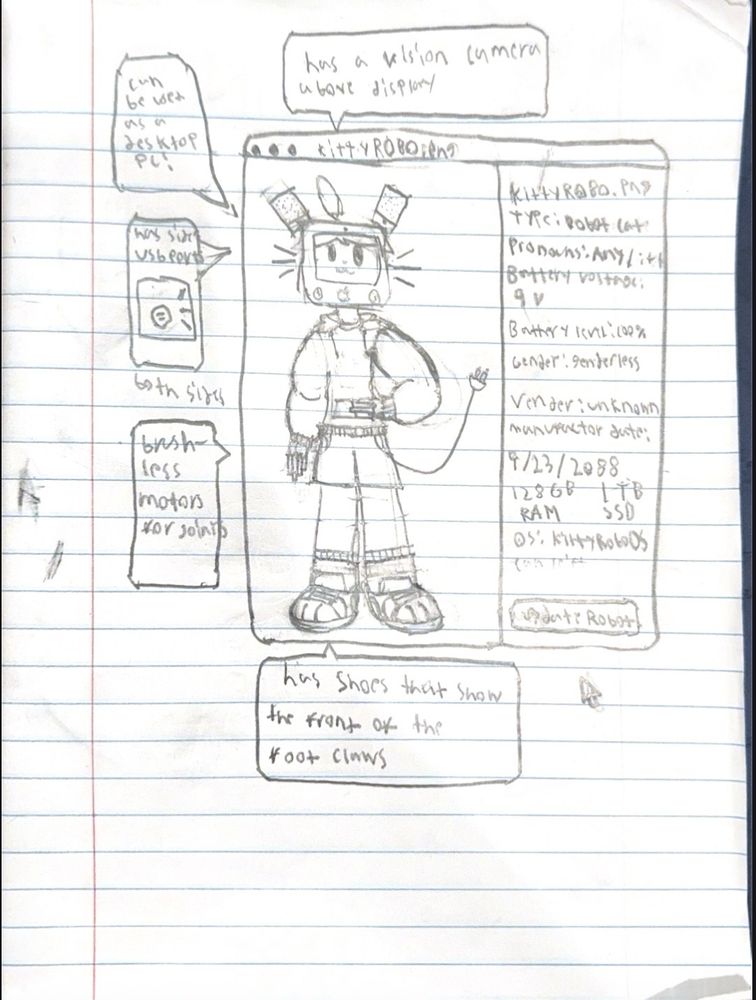 has a vision camera
above display
can
be used
as a
desktop
PC!
kittyROBO.png
has side
usb ports
both sides
brush-
less
motors
for joints
kittyROBO.png
Type: Robot cat
Pronouns: Any/it
Battery voltage:
9 V
Battery level: 100%
Gender: genderless
Vender: unknown
manufactor date:
9/23/2088
128GB 1 TB
RAM SSD
OS: KittyRoboOS
update: Robot
has shoes that show
the front of the
foot claws